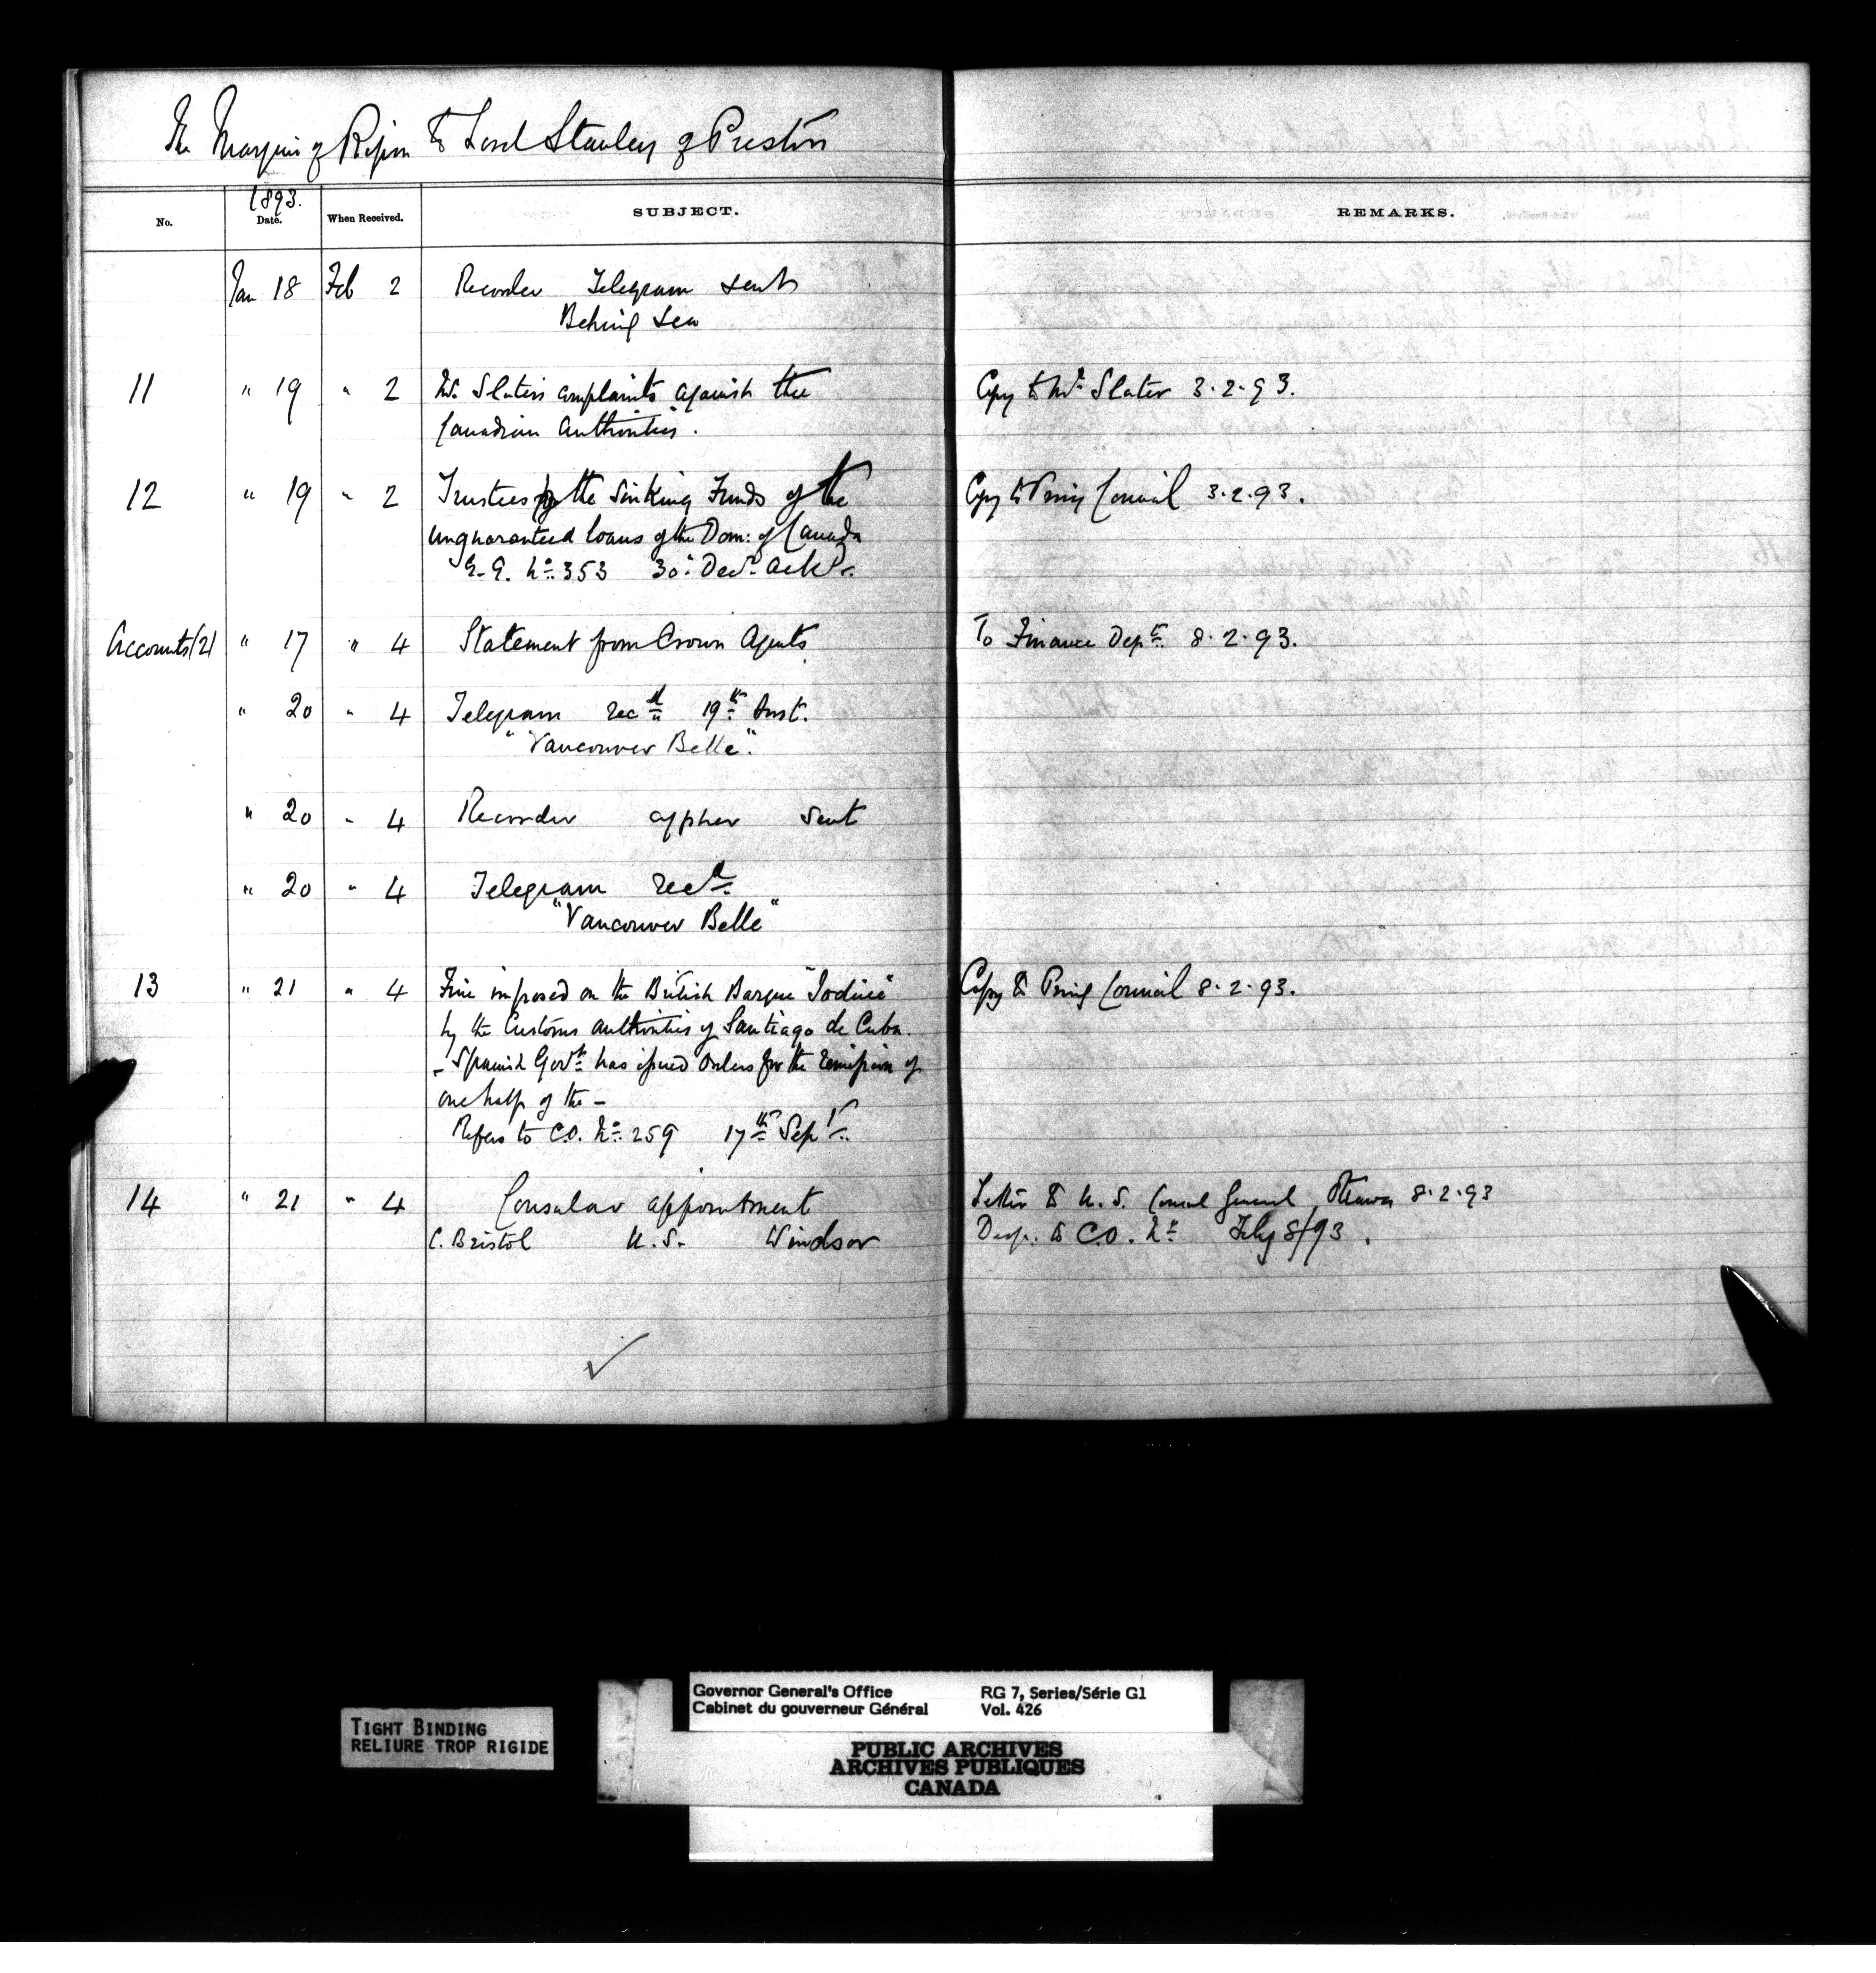 The Marquis of Ripon to Lord Stanley of Preston
1893.
No. Date. When Received. SUBJECT. REMARKS.
Jan 18 Feb 2 Recorder Telegram sent
Behring Sea
11 " 19 " 2 Mr. Slater's complaints against the Copy to Mr. Slater 3.2.93.
Canadian Authorities.
12 " 19 " 2 Trustees for the Sinking Funds of the Copy to Privy Council 3.2.93.
unguaranteed loans of the Dom: of Canada
G.G. No. 353 30: Decr. Ackd.
Accounts (2) " 17 " 4 Statement from Crown Agents To Finance Dept. 8.2.93.
" 20 " 4 Telegram recd. 19th Inst.
"Vancouver Belle".
" 20 " 4 Recorder cypher sent
" 20 " 4 Telegram recd.
"Vancouver Belle"
13 " 21 " 4 Fine imposed on the British Barque Copy to Privy Council 8.2.93.
by the Customs authorities of Santiago de Cuba.
- Spanish Govt. has issued orders for the remission of
one half of the -
Refers to C.O. No. 259 17th Sept.
14 " 21 " 4 Consular appointment Letter to U.S. Consul General Ottawa 8.2.93
C. Bristol U.S. Windsor Desp. to C.O. No. Feby 8/93.
✓
Governor General's Office RG 7, Series/Série G1
Cabinet du gouverneur Général Vol. 426
TIGHT BINDING
RELIURE TROP RIGIDE
PUBLIC ARCHIVES
ARCHIVES PUBLIQUES
CANADA